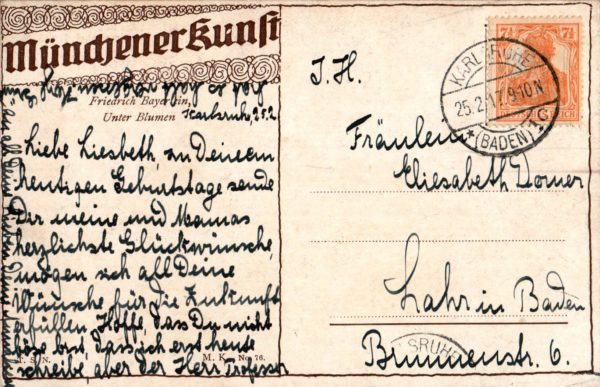 Münchener Kunst
Friedrich Bayerlein,
Unter Blumen
Karlsruh, 25.2.
Liebe Liesbeth, zu Deinem
heutigen Geburtstage sende
Dir meine und Mamas
herzlichste Glückwünsche,
mögen sich all Deine
Wünsche für die Zukunft
erfüllen. Hoffe, dass Du nicht
böse bist, dass ich erst heute
schreibe, aber der Herr Professor
T. S. N.
M. K. No 76.
KARLSRUHE
25.2.17.9-10N
*(BADEN)1
7½
7½
REICH
I. H.
Fräulein
Eliesabeth Dorner
Lahr in Baden
Brunnenstr. 6.
LSRUHE